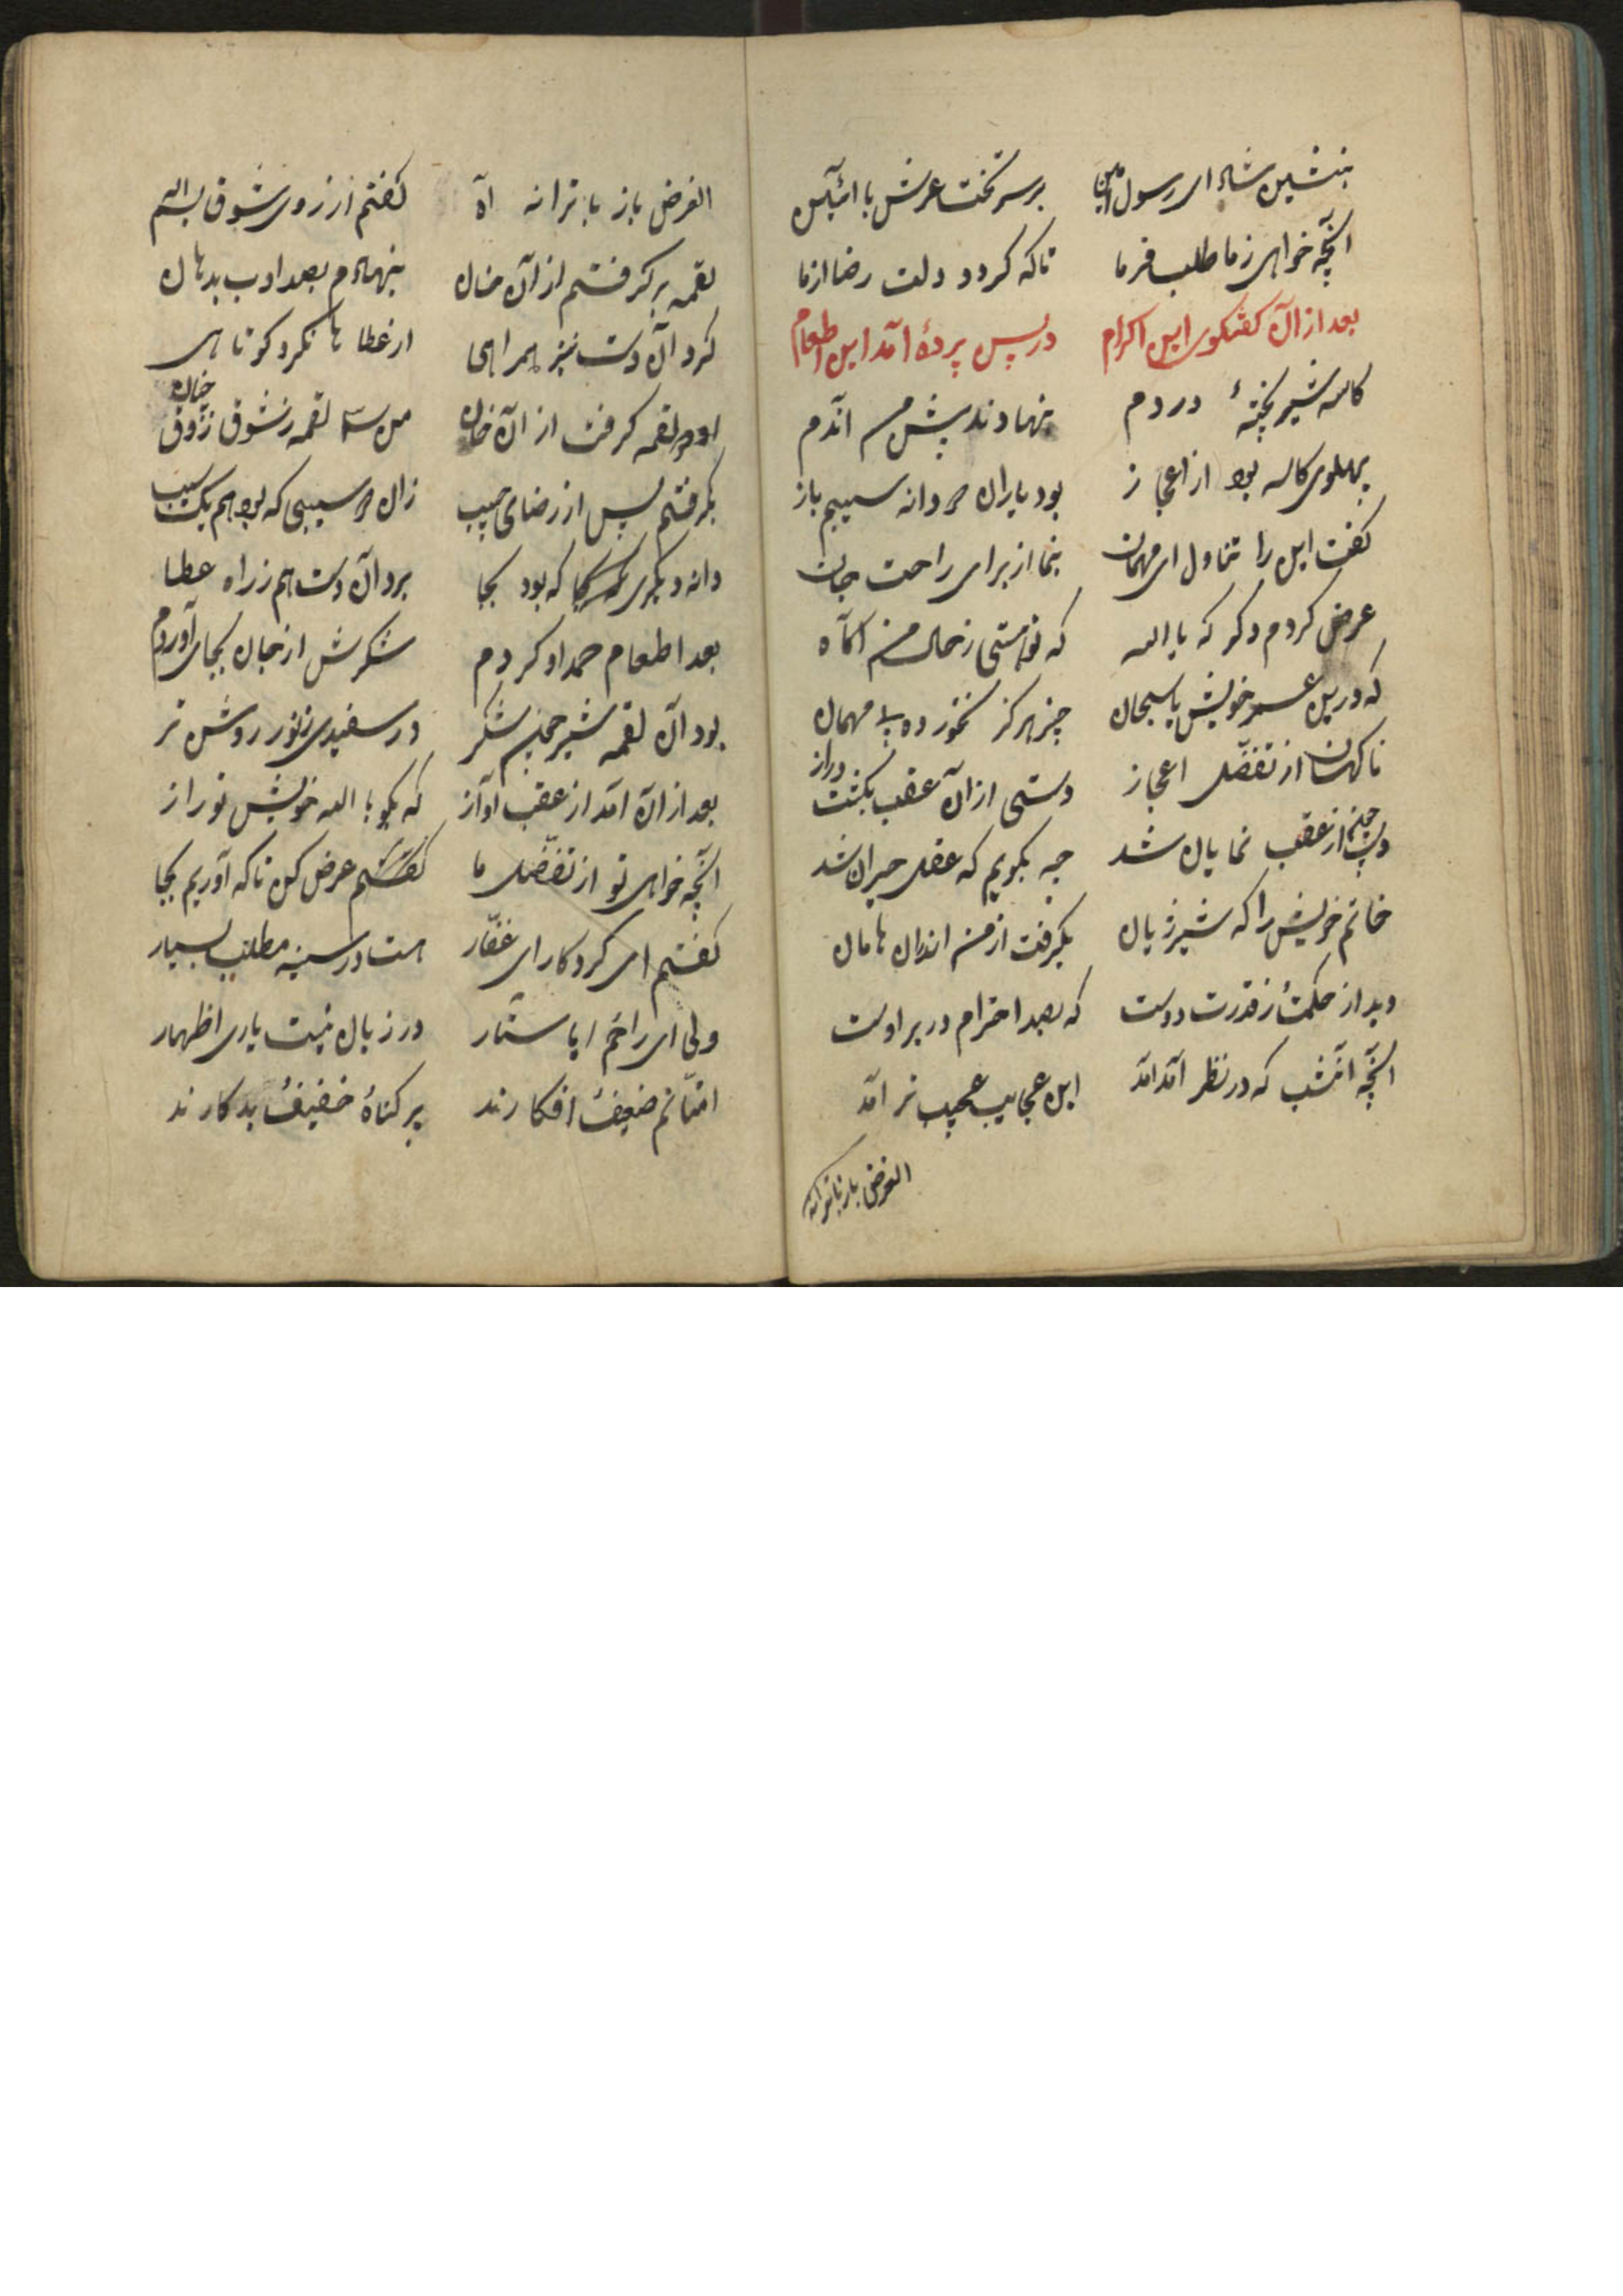 بنشین شاد ای رسول امین برسر تخت عرش با آئین
آنچه خواهی زما طلب فرما تا که کردد دلت رضا ازما
بعد از آن کفتکوی این اکرام در پس پردهٔ آمد این اطعام
کاسه شیر پختهٔ در دم بنهادند پیش من آندم
پهلوی کاسه بود از اعجاز بود یاران دو دانه سیبم باز
کفت این را تناول ای مهمان بنما از برای راحت جان
عرض کردم دکر که یا الله که تو هستی زحال من آکاه
که درین عمر خویش یا سبحان چیز هرکز نخورده بی مهمان
ناکهان از تفضل اعجاز دستی از آن عقب بکشت دراز
دست چنم از عقب نمایان شد چه بکویم که عقل حیران شد
خاتم خویش را که شیر ژیان بکرفت از من اندران هامان
دید از حکمت ز قدرت دوست که بصد احترام در بر اوست
آنچه آنشب که در نظر آمد آمد این عجایب عجیب تر آمد
الغرض باز با ترانه
الغرض باز با ترانه آه کفتم از روی شوق بسم الله
لقمه بر کرفتم از آن خوان بنهادم بصد ادب بدهان
کرد آن دست نیز همراهی از عطا ها نکرد کوتاهی
او دو لقمه کرفت از آن خوان من سه لقمه زشوق ذوق چنان
بکرفتم پس از رضای حبیب زان دو سیبی که بود هم یک سیب
دانه دیکری که بود بجا برد آن دست هم زراه عطا
بعد اطعام حمد او کردم شکرش از جان بجای آوردم
بود آن لقمه شیر چون شکر در سفیدی زنور روشن تر
بعد از آن آمد از عقب آواز که بکو با اله خویش تو راز
آنچه خواهی تو از تفضل ما عرض کن تا که آوریم بجا
کفتم ای کردکار ای غفار هست در سینه مطلب بسیار
ولی ای راحم ایا ستار در زبان نیست یاری اظهار
امتانم ضعیف افکارند پر کناه خفیف بد کارند